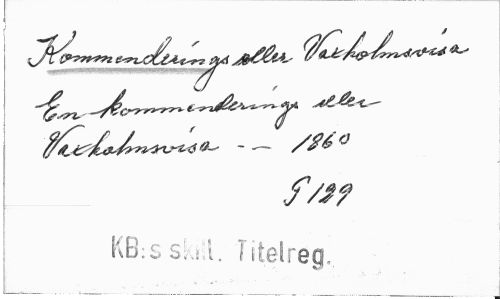 Kommenderings eller Vaxholmsvisa
En kommenderings eller
Vaxholmsvisa -- 1860
G 129
KB:s skill. Titelreg.